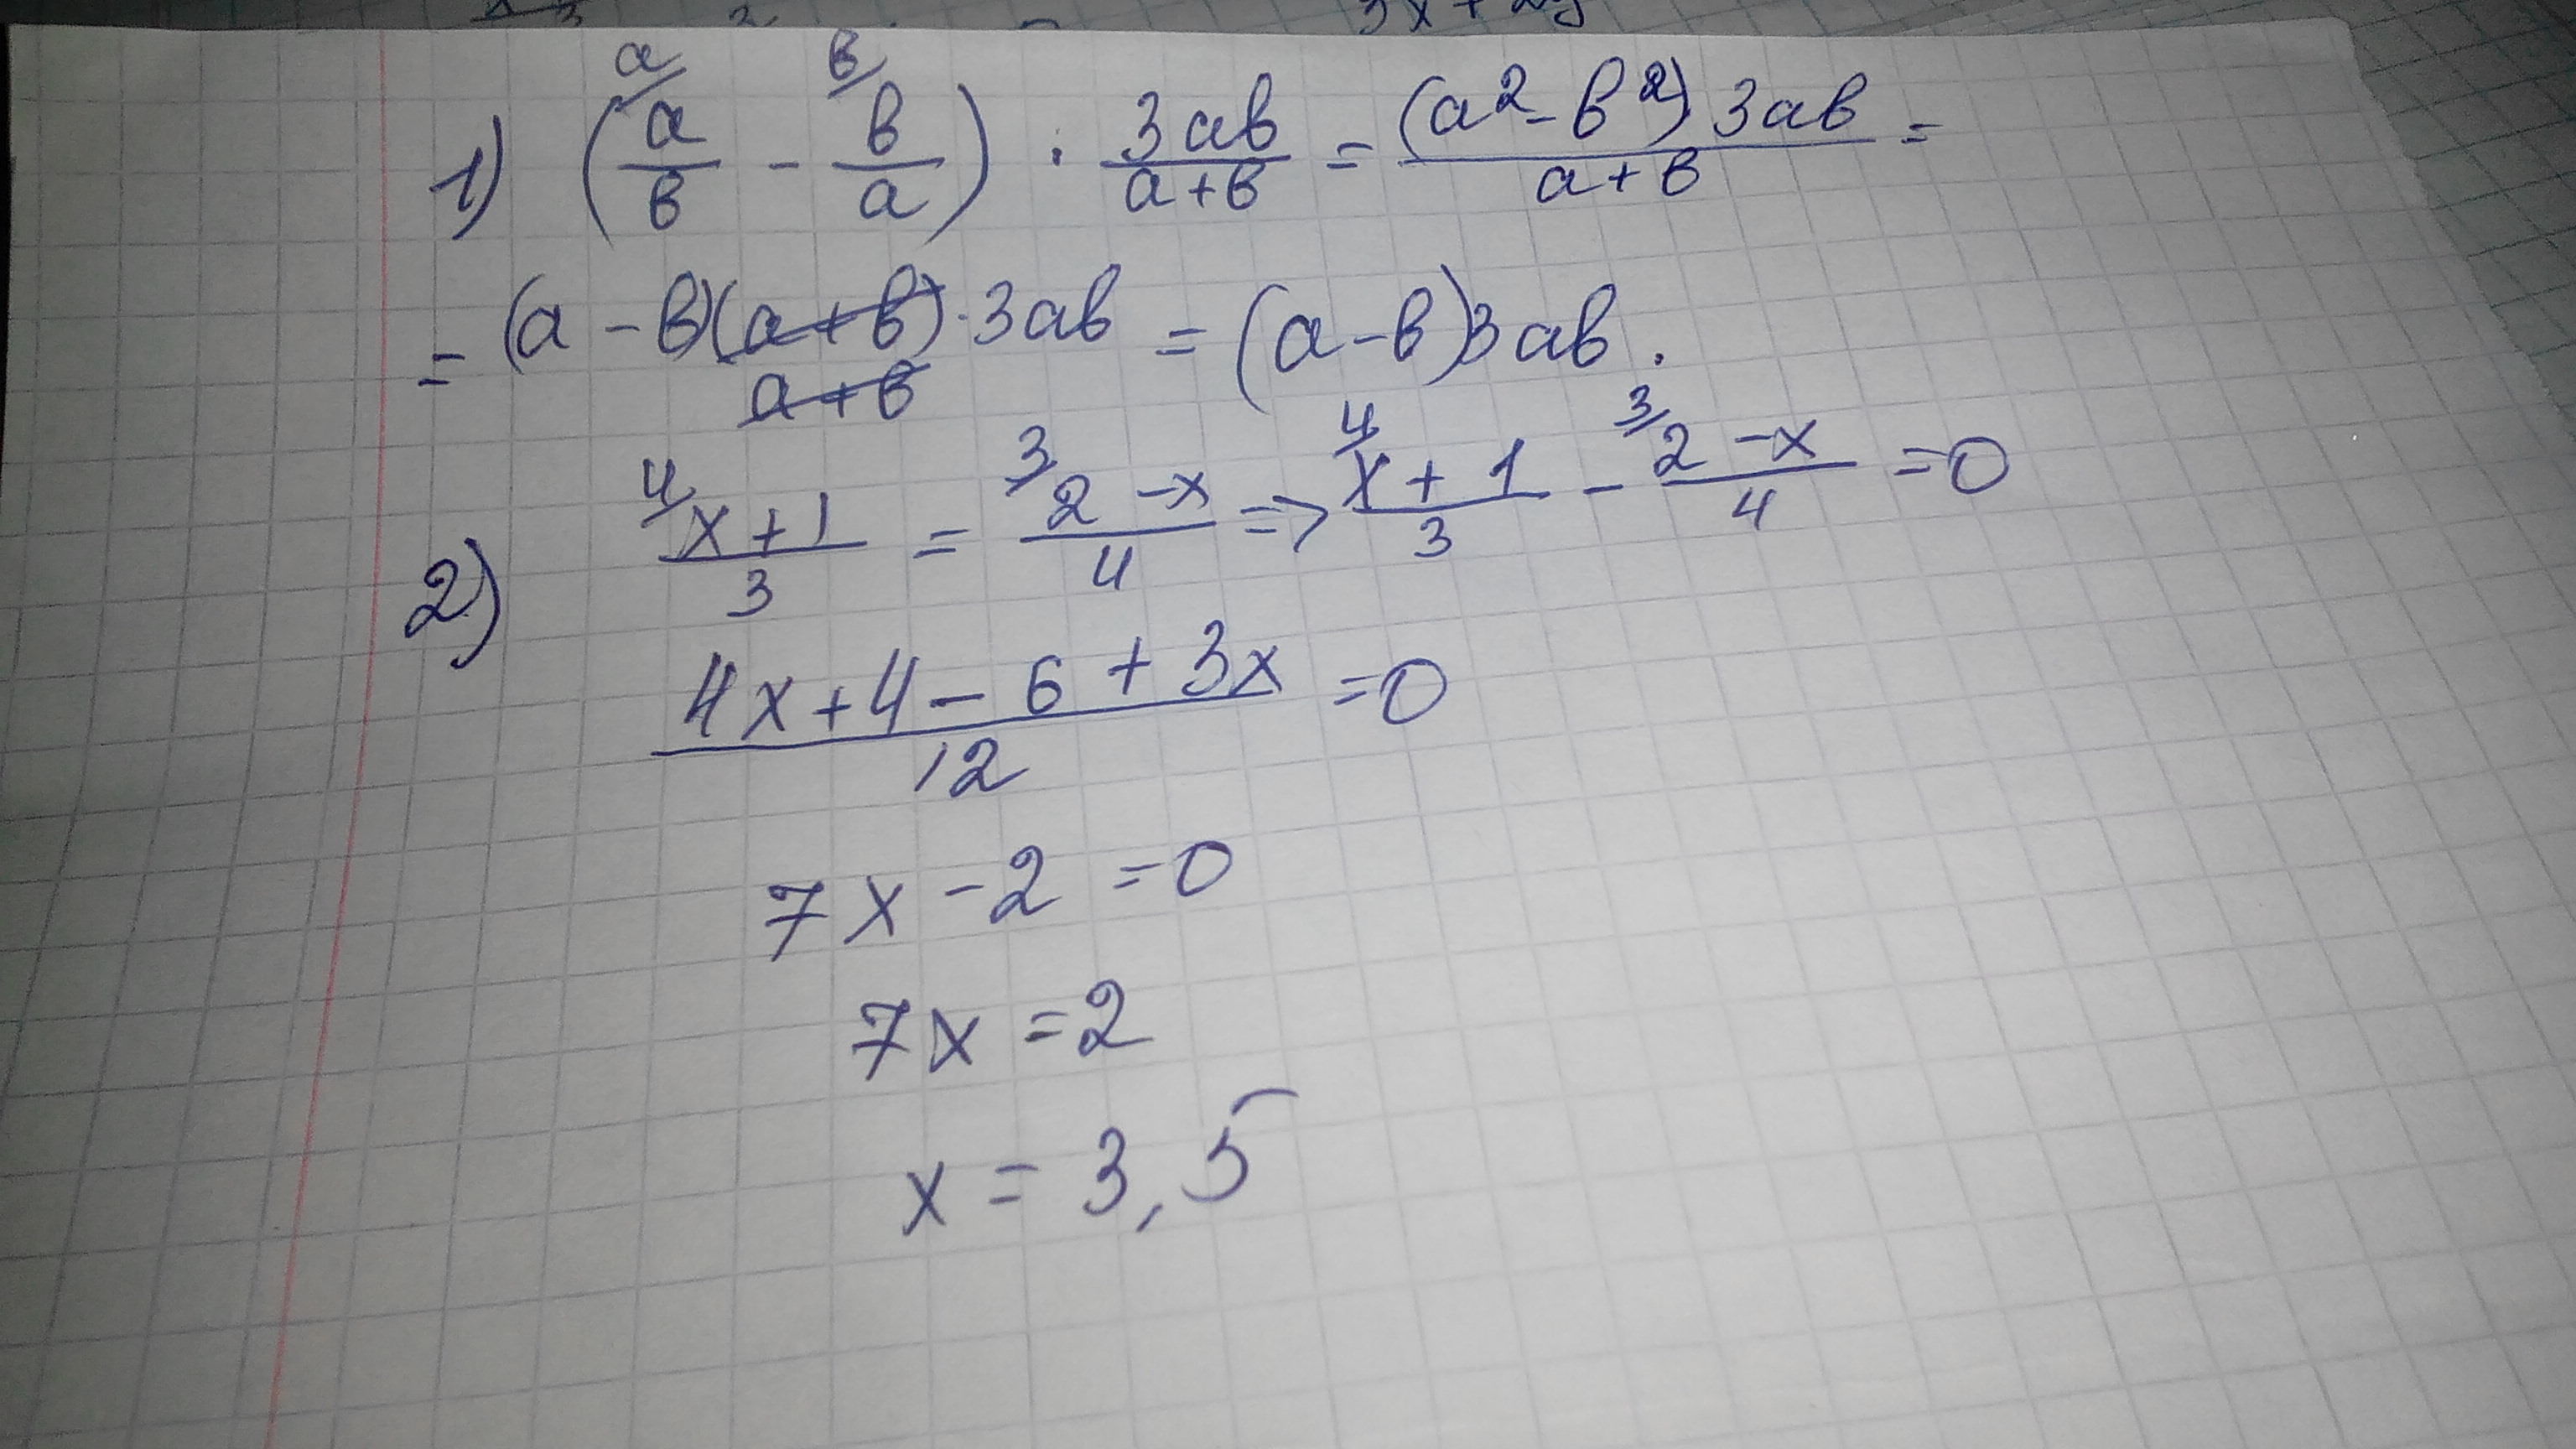 1) (a/ a/b - b/ b/a) · 3ab/(a+b) = (a²-b²)3ab/(a+b) =
= (a-b)(a+b)·3ab/(a+b) = (a-b)3ab.
2) 4/ (x+1)/3 = 3/ (2-x)/4 => 4/ (x+1)/3 - 3/ (2-x)/4 =0
(4x+4-6+3x)/12 =0
7x-2=0
7x=2
x=3,5